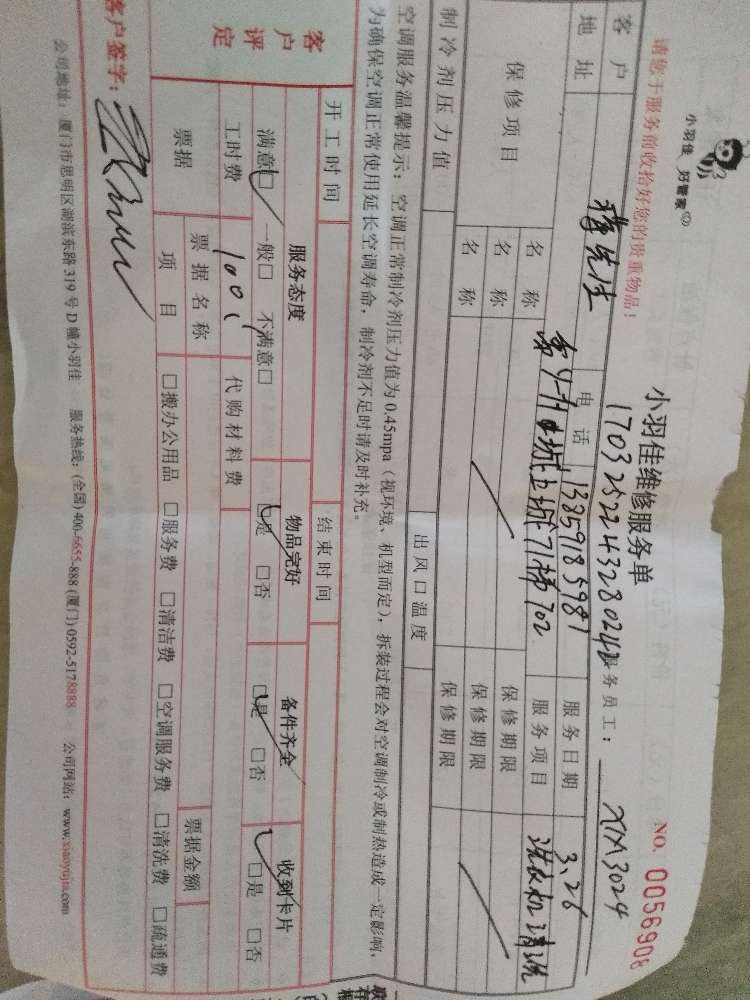 小羽佳 好管家
请您于服务前收拾好您的贵重物品!
小羽佳维修服务单
NO. 0056908
1703252243280242 服务员工: XM3024
客户 先生 电话 13859185981 服务日期 3.26
地址 71梯702 服务项目 洗衣机清洗
保修项目 名称 保修期限
名称 保修期限
名称 保修期限
制冷剂压力值 出风口温度
空调服务温馨提示: 空调正常制冷剂压力值为0.45mpa(视环境、机型而定), 拆装过程会对空调制冷或制热造成一定影响,
为确保空调正常使用延长空调寿命, 制冷剂不足时请及时补充。
开工时间 结束时间
客户评定 服务态度 物品完好 备件齐全 收到卡片
满意□ 一般□ 不满意□ □是 □否 □是 □否 □是 □否
工时费 100 代购材料费
票据 票据名称 票据金额
项目 □搬办公用品 □服务费 □清洁费 □空调服务费 □清洗费 □疏通费
客户签字:
公司地址: 厦门市思明区湖滨东路319号D幢小羽佳 服务热线: (全国)400-6655-888 (厦门)0592-5178888 公司网站: www.xiaoyujia.com